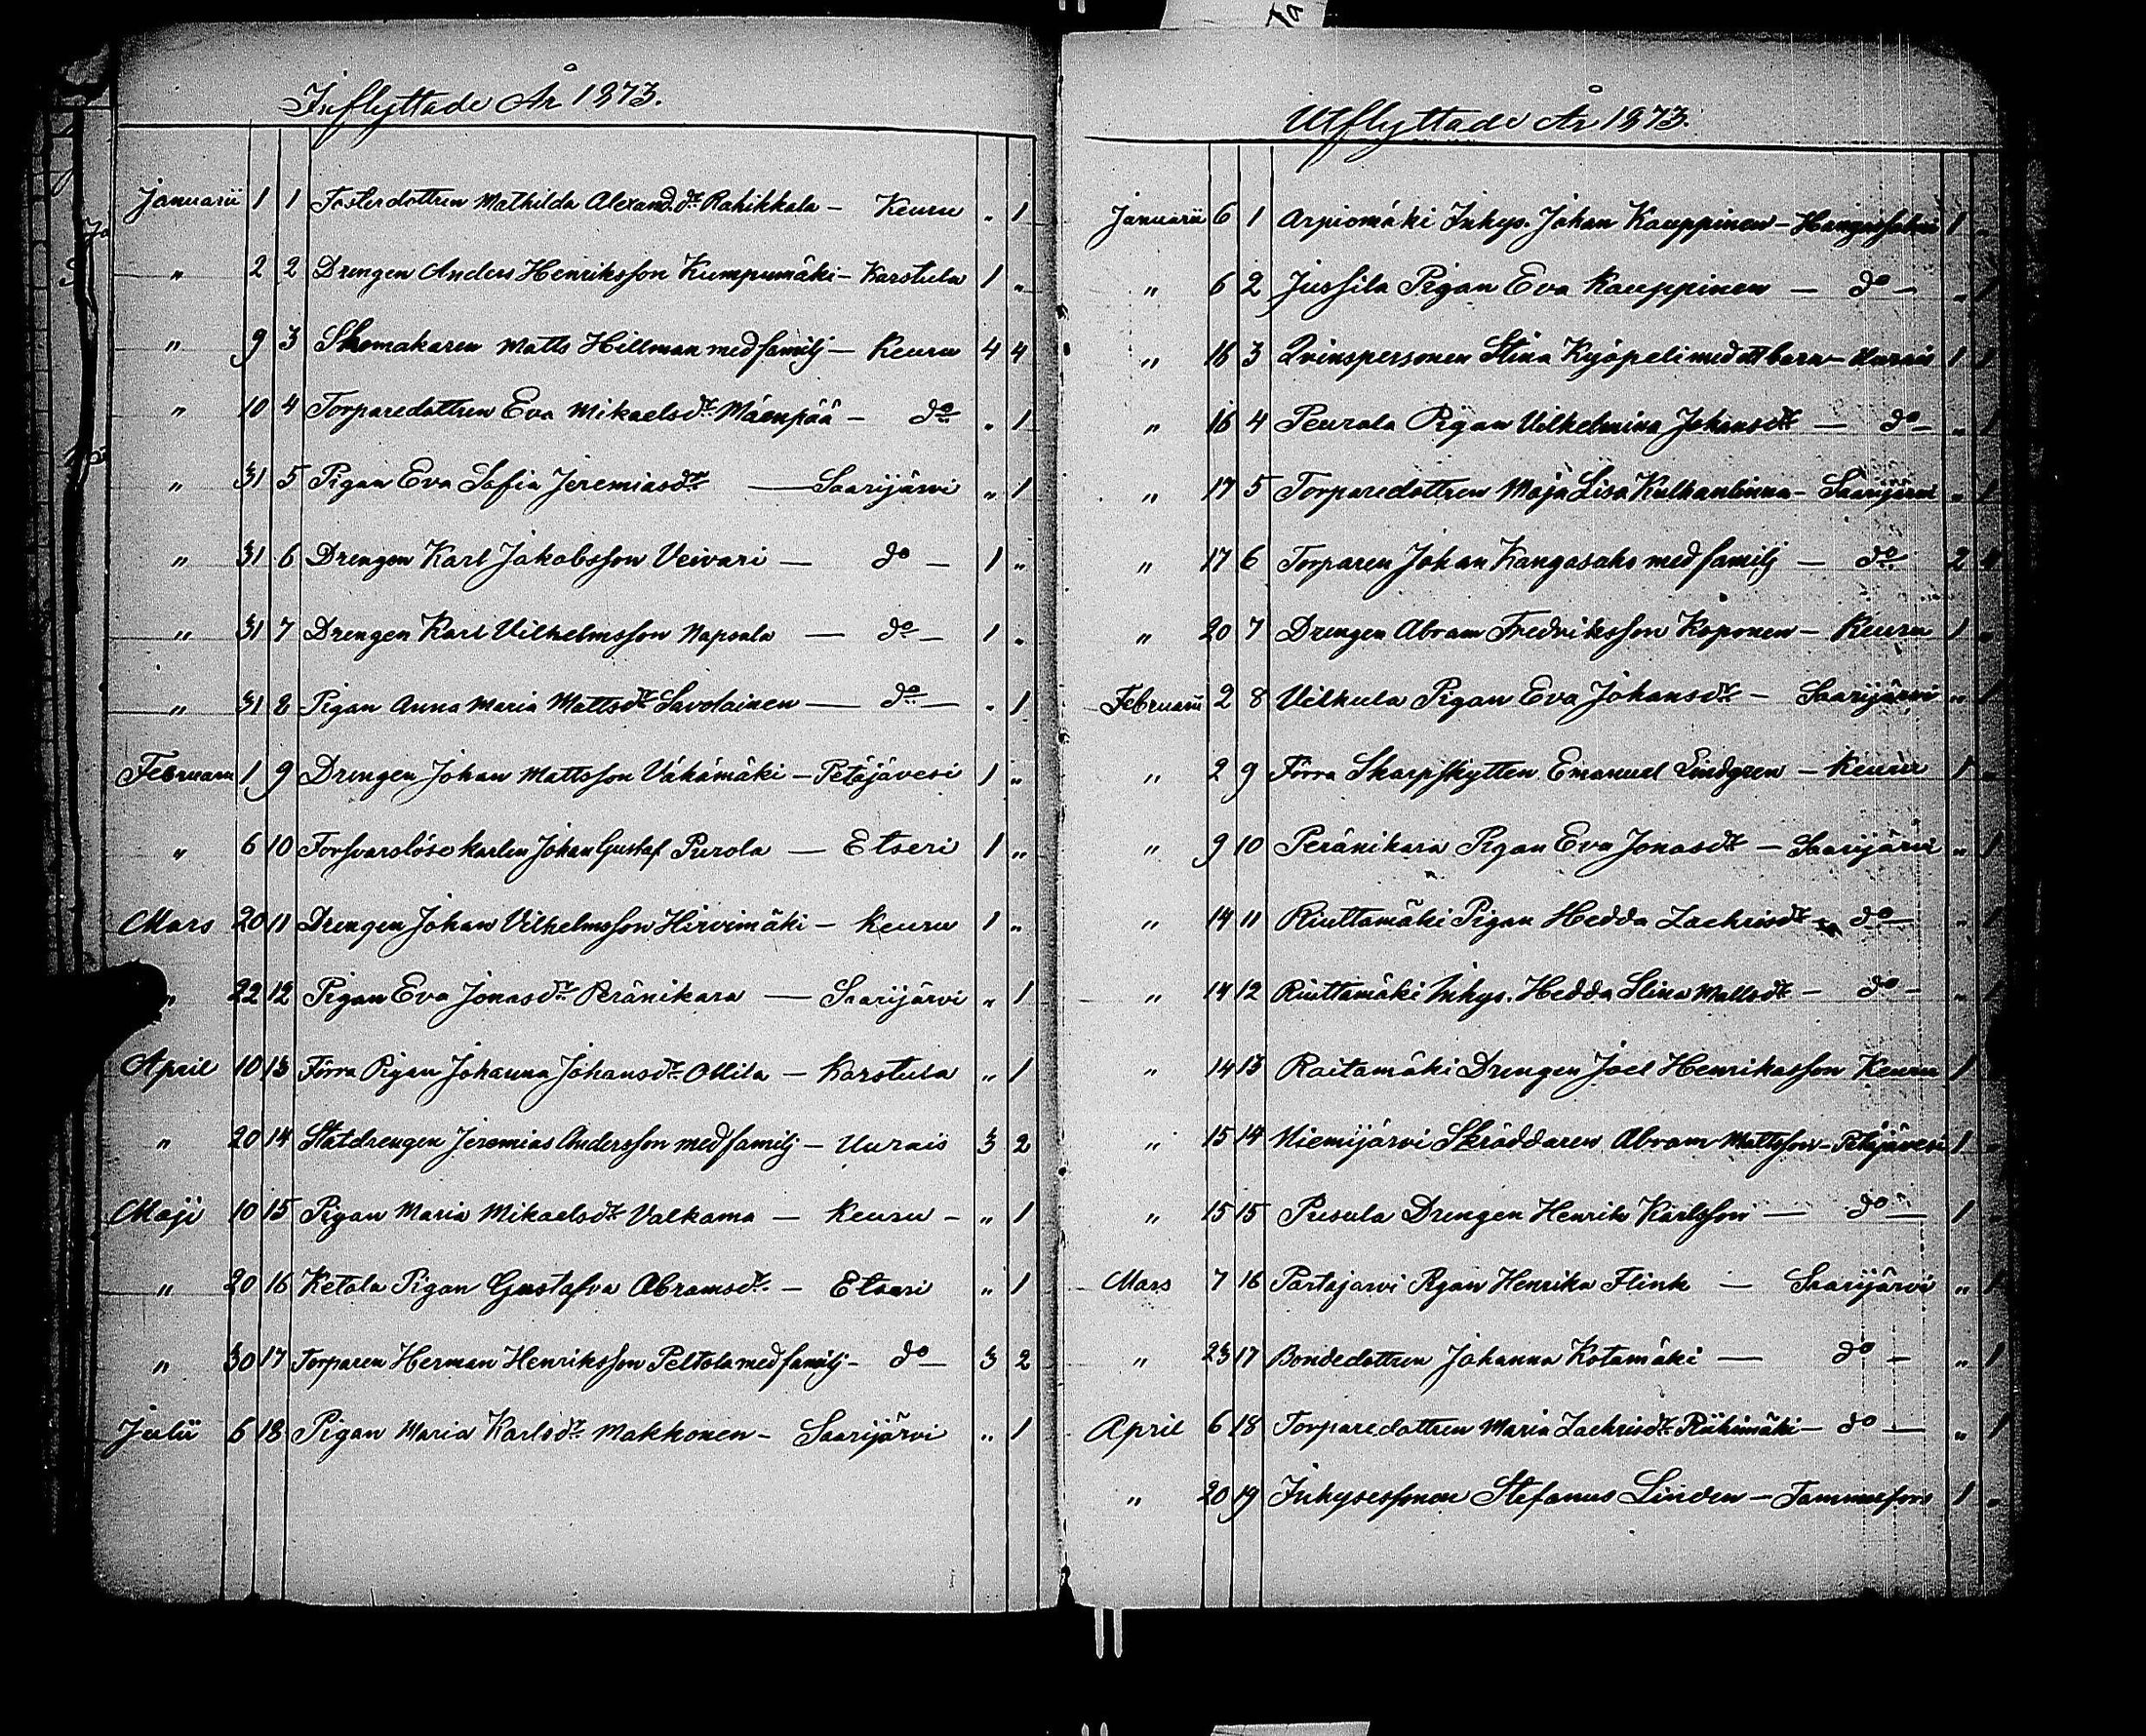 Inflyttade År 1873.
Januarii 1 1 Fosterdottren Mathilda Alexand.dr Rahikkala – Keuru " 1
" 2 2 Drengen Anders Henriksson Kumpumäki – Karstula 1 "
" 9 3 Skomakaren Matts Hillman med familj – Keuru 4 4
" 10 4 Torparedottren Eva Mikaelsdr Mäenpää – do " 1
" 31 5 Pigan Eva Sofia Jeremiasdr — Saarijärvi " 1
" 31 6 Drengen Karl Jakobsson Veivari — do – 1 "
" 31 7 Drengen Karl Vilhelmsson Napsala — do – 1 "
" 31 8 Pigan Anna Maria Mattsdr Savolainen — do — " 1
Februarii 1 9 Drengen Johan Mattsson Vähämäki – Petäjävesi 1 "
" 6 10 Forsvarslöse karlen Johan Gustaf Purola — Etseri 1 "
Mars 20 11 Drengen Johan Vilhelmsson Hirvimäki – Keuru 1 "
" 22 12 Pigan Eva Jonasdr Peränikara — Saarijärvi " 1
April 10 13 Förra Pigan Johanna Johansdr Ollila – Karstula " 1
" 20 14 Statdrengen Jeremias Andersson med familj – Uurais 3 2
Maji 10 15 Pigan Maria Mikaelsdr Valkama — Keuru – " 1
" 20 16 Ketola Pigan Gustafva Abramsdr – Etseri " 1
" 30 17 Torparen Herman Henriksson Peltola med familj – do – 3 2
Julii 6 18 Pigan Maria Karlsdr Makkonen – Saarijärvi " 1
Utflyttade År 1873.
Januarii 6 1 Arpiomäki Inhys. Johan Kauppinen – 1 "
" 6 2 Jussila Pigan Eva Kauppinen — do – " 1
" 16 3 Qvinspersonen Stina Kyöpeli med ett barn – Uurais 1 1
" 16 4 Peurala Pigan Vilhelmina Johansdr — do – " 1
" 17 5 Torparedottren Maja Lisa – Saarijärvi " 1
" 17 6 Torparen Johan Kangasaho med familj — do 2
" 20 7 Drengen Abram Fredriksson Koponen – Keuru 1 "
Februarii 2 8 Vilkula Pigan Eva Johansdr – Saarijärvi " 1
" 2 9 Förra Skarpskytten Emanuel Lindgren – Keuru 1 "
" 9 10 Peränikara Pigan Eva Jonasdr – Saarijärvi " 1
" 14 11 Riuttamäki Pigan Hedda Zachrisdr – do — " 1
" 14 12 Riuttamäki Inhys. Hedda Stina Mattsdr – do – " 1
" 14 13 Raitamäki Drengen Joel Henriksson Keuru 1
" 15 14 Niemijärvi Skräddaren Abram Mattsson – Petäjävesi 1 "
" 15 15 Pusula Drengen Henrik Karlsson — do — 1 "
Mars 7 16 Partajarvi Pigan Henrika Flink — Saarijärvi " 1
" 23 17 Bondedottren Johanna Kotamäki — do – " 1
April 6 18 Torparedottren Maria Zachrisdr Riihimäki – do — " 1
" 20 19 Inhysessonen Stefanus Linden – Tammerfors 1 "